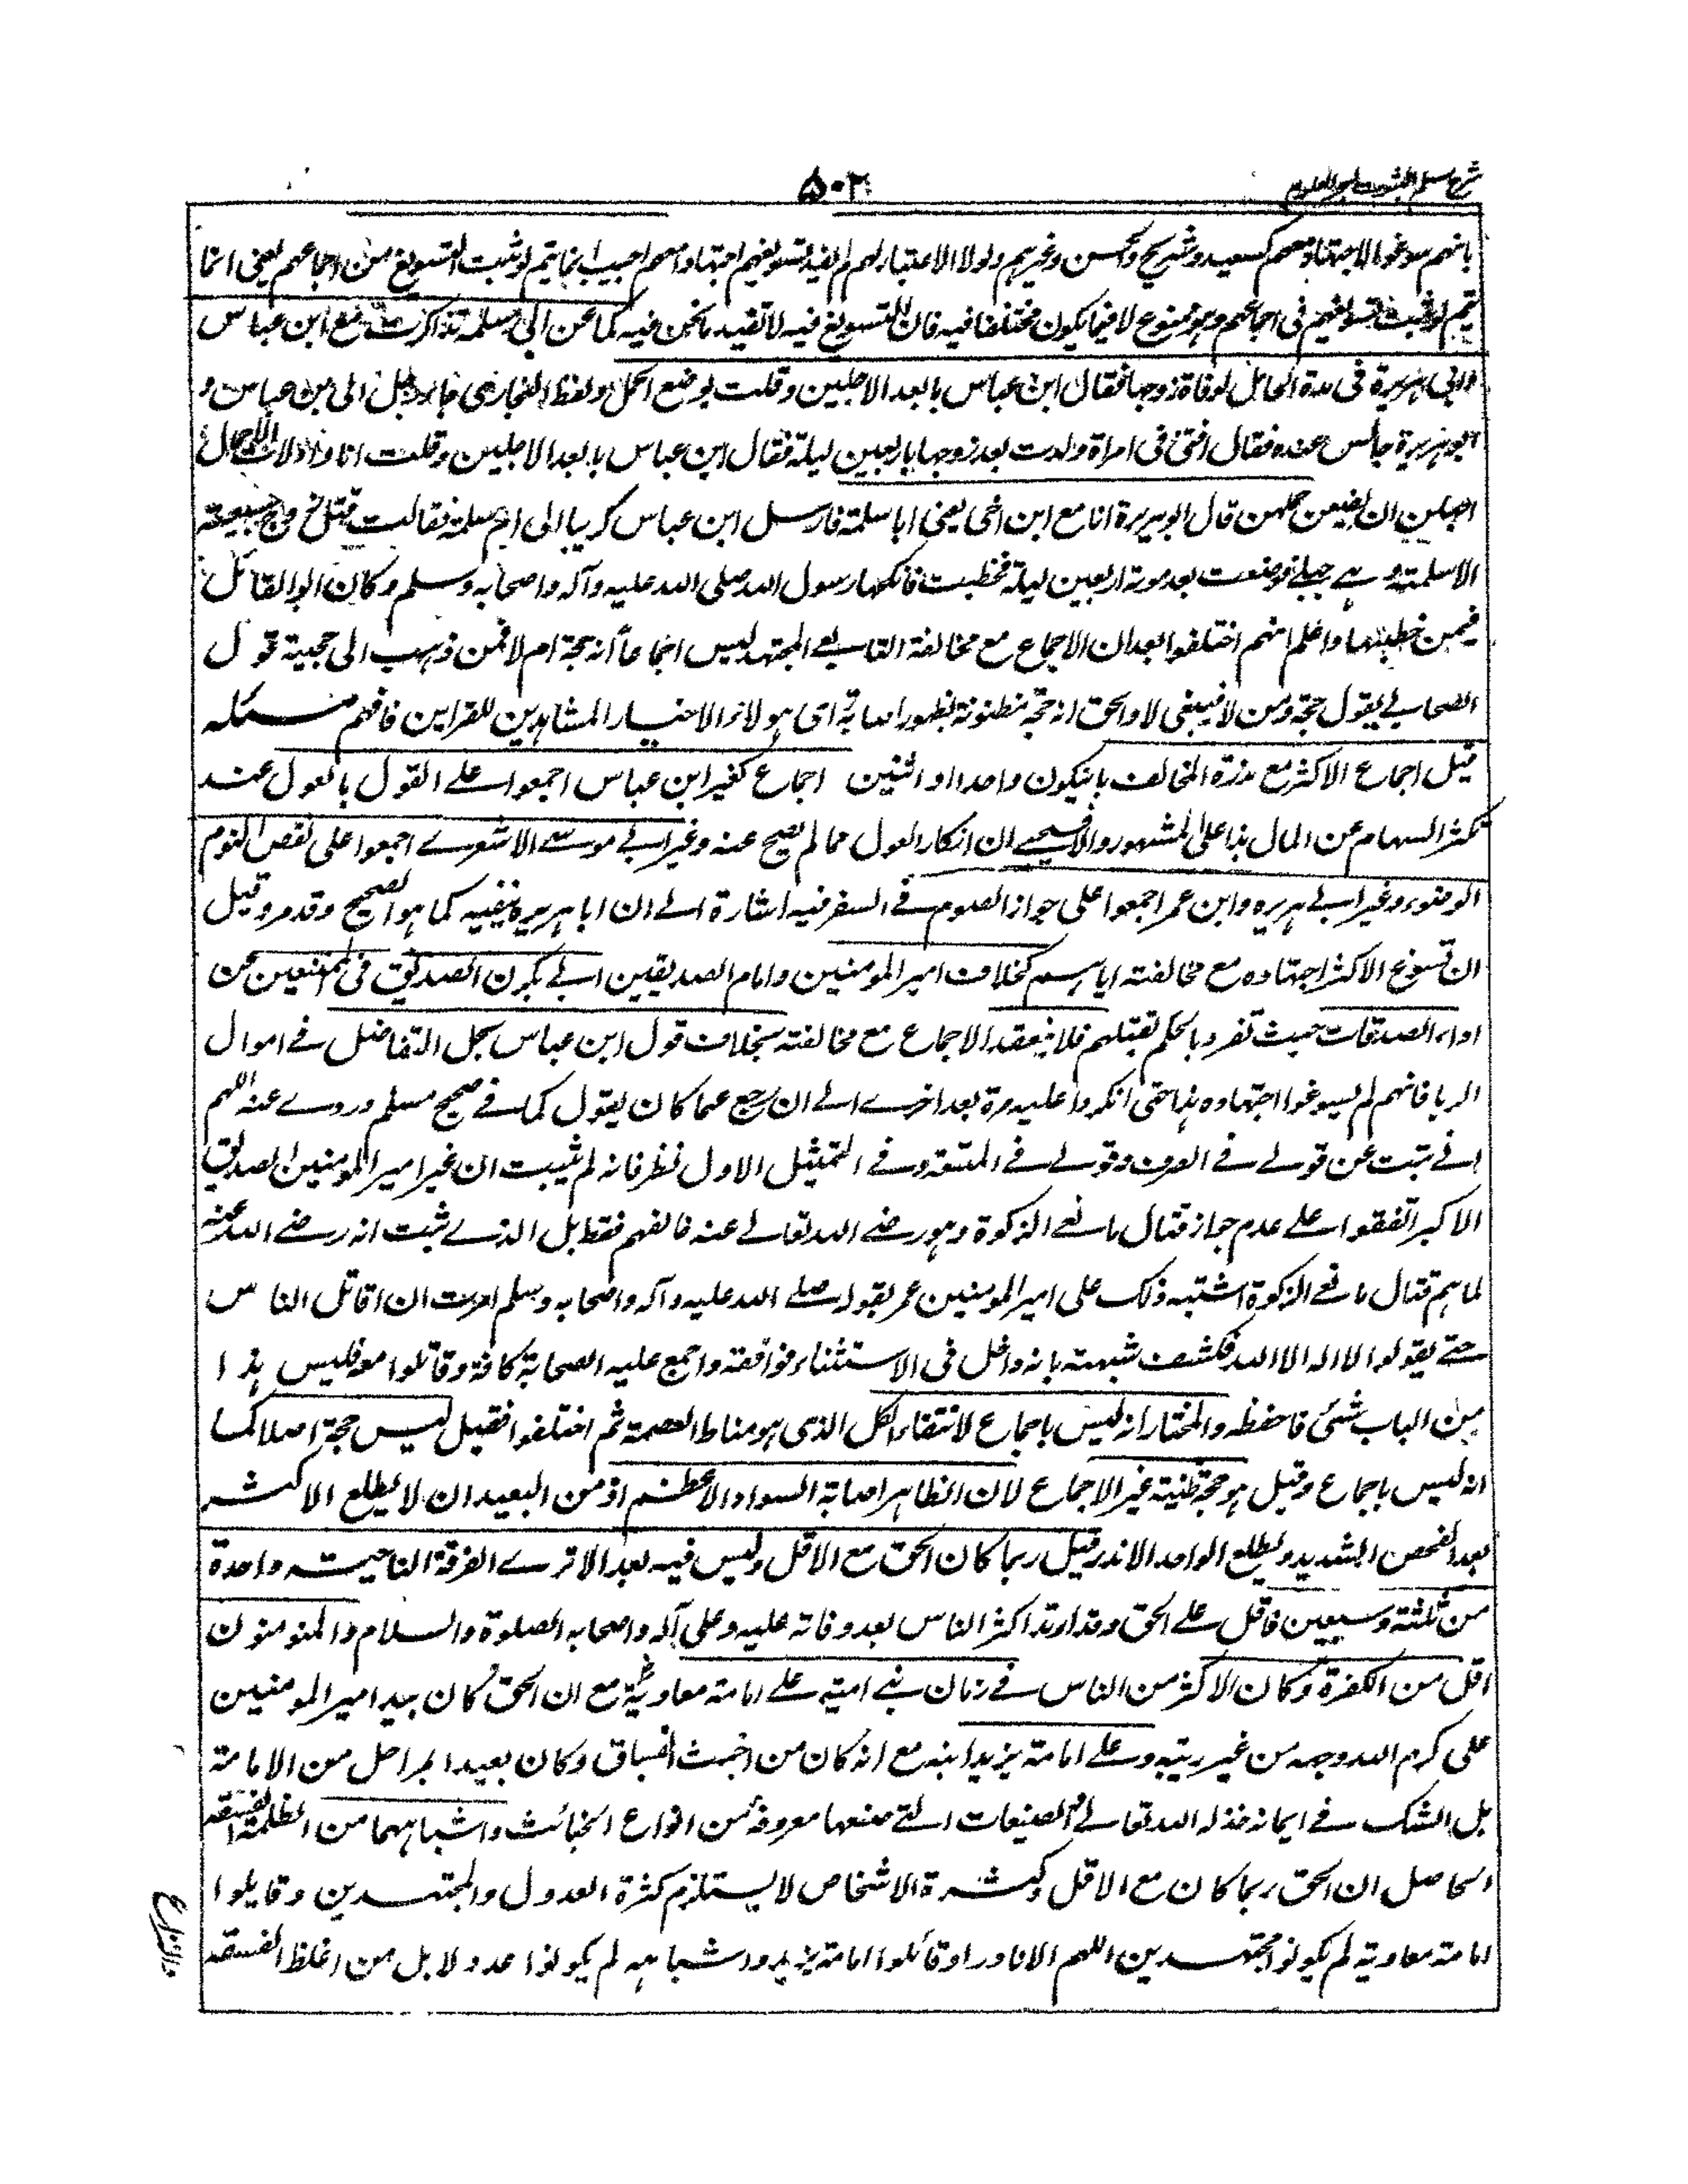 شرح مسلم الثبوت لبحر العلوم
۵۰۲
بانهم سوغوا الاجتهاد معهم كسعيد وشريح والحسن وغيرهم ولولا الاعتبار لهم لم يفد تسويغهم اجتهادهم اجيب انما يتم لو ثبت التسويغ من اجماعهم يعنى انما
يتم لو ثبت تسويغهم فى اجماعهم وهو ممنوع لا فيما يكون مختلفا فيه فان التسويغ فيه لا تفيد ما نحن فيه كما عن ابى سلمة تذاكرت مع ابن عباس
وابى هريرة فى عدة الحامل لوفاة زوجها فقال ابن عباس بابعد الاجلين وقلت بوضع الحمل ولفظ البخارى جاء رجل الى ابن عباس و
ابو هريرة جالس عنده فقال افتنى فى امراة ولدت بعد زوجها باربعين ليلة فقال ابن عباس بابعد الاجلين وقلت انا واولات الاحمال
اجلهن ان يضعن حملهن قال ابو هريرة انا مع ابن اخى يعنى ابا سلمة فارسل ابن عباس كريبا الى ام سلمة فقالت قتل زوج سبيعة
الاسلمية وهى حبلى فوضعت بعد موته اربعين ليلة فخطبت فانكحها رسول الله صلى الله عليه وآله واصحابه وسلم وكان ابو القائل
فيمن خطبها واعلم انهم اختلفوا بعد ان الاجماع مع مخالفة التابعى المجتهد ليس اجماعا انه حجة ام لا فمن ذهب الى حجية قول
الصحابى يقول حجة ومن لا فيبغى لا والحق انه حجة مظنونة بظهور اصابة اى هولاء الاخيار المشاهدين للقراين فافهم مسئله
قيل اجماع الاكثر مع ندرة المخالف بانيكون واحدا او اثنين اجماع كغير ابن عباس اجمعوا على القول بالعول عند
تكثر السهام عن المال هذا على المشهور والا فسيجىء ان انكار العول مما لم يصح عنه وغير ابى موسى الاشعرى اجمعوا على نقض النوم
الوضوء وغير ابى هريره وابن عمر اجمعوا على جواز الصوم فى السفر فيه اشارة الى ان ابا هريرة ينفيه كما هو الصحيح وقد مر وقيل
ان تسوغ الاكثر اجتهاده مع مخالفته اياهم كخلاف امير المومنين وامام الصديقين ابى بكرن الصديق فى الممتنعين عن
اداء الصدقات حيث تفرد بالحكم بقتلهم فلا ينعقد الاجماع مع مخالفته بخلاف قول ابن عباس بحل التفاضل فى اموال
الربا فانهم لم يسوغوا اجتهاده هذا حتى انكروا عليه مرة بعد اخرى الى ان رجع عما كان يقول كما فى صحيح مسلم وروى عنه اللهم
انى تبت عن قولى فى الصرف وقولى فى المتعة وفى التمثيل الاول نظر فانه لم يثبت ان غير امير المومنين الصديق
الاكبر اتفقوا على عدم جواز قتال مانعى الزكوة وهو رضى الله تعالى عنه خالفهم فقط بل الذى ثبت انه رضى الله عنه
لما هم قتال مانعى الزكوة اشتبه ذلك على امير المومنين عمر بقوله صلى الله عليه وآله واصحابه وسلم امرت ان اقاتل الناس
حتى يقولوا لا اله الا الله فكشف شبهته بانه داخل فى الاستثناء فوافقه واجمع عليه الصحابة كافة وقاتلوا معه فليس هذا
من الباب شئى فاحفظه والمختار انه ليس باجماع لانتفاء الكل الذى هو مناط العصمة ثم اختلفوا فقيل ليس حجة اصلا كما
انه ليس باجماع وقيل هو حجة ظنية غير الاجماع لان الظاهر اصابة السواد الاعظم اذ من البعيد ان لا يطلع الاكثر
بعد الفحص الشديد ويطلع الواحد الاندر قيل ربما كان الحق مع الاقل وليس فيه بعد الا ترى الفرقة الناجية واحدة
من ثلثة وسبعين فاقل على الحق وقد ارتد اكثر الناس بعد وفاته عليه وعلى آله واصحابه الصلوة والسلام والمنومنون
اقل من الكفرة وكان الاكثر من الناس فى زمان بنى امية على امامة معاوية مع ان الحق كان بيد امير المومنين
على كرم الله وجهه من غير ريبة وعلى امامة يزيد ابنه مع انه كان من اخبث الفساق وكان بعيدا بمراحل من الامامة
بل الشك فى ايمانه خذله الله تعالى الصنيعات التى صنعها معروفة من انواع الخبائث واشباههما من الظلمة الفسقة
الحاصل ان الحق ربما كان مع الاقل وكثرة الاشخاص لا يستلزم كثرة العدول والمجتهدين وقايلوا
امامة معاوية لم يكونوا مجتهدين اللهم الا نادرا وقائلوا امامة يزيد واشباهه لم يكونوا عدولا بل من اغلظ الفسقة